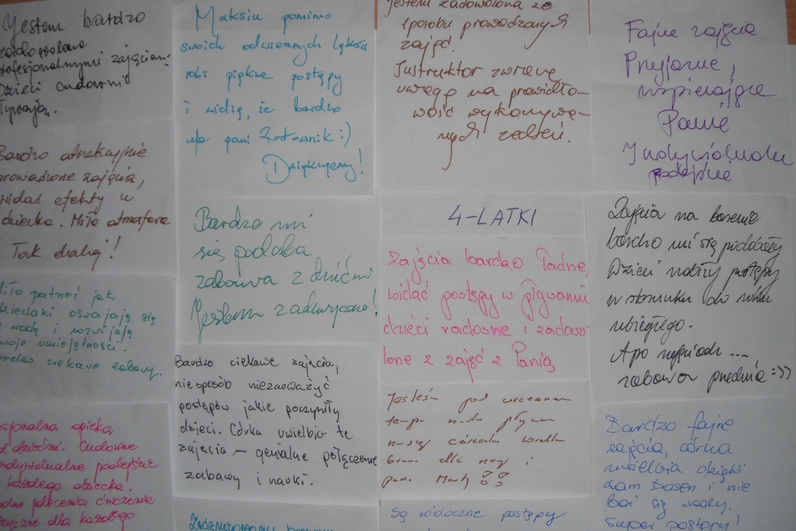 Jestem bardzo
zadowolona
profesjonalnymi zajęciami
Dzieci cudownie
Bardzo atrakcyjnie
prowadzone zajęcia,
widać efekty w
dziecka. Miła atmosfera
Tak dalej!
Miło patrzeć jak
dzieciaki oswajają się
z wodą i rozwijają
swoje umiejętności.
Bardzo ciekawe zabawy.
opieka
z dziećmi. Cudowne
indywidualne podejście
każdego dziecka.
dla każdego
Maksiu pomimo
swoich odwiecznych lęków
robi piękne postępy
i widzę, że bardzo
pani Ratownik :)
Dziękujemy!
Bardzo mi
się podoba
zabawa z dziećmi
Jestem zadowolona!
Bardzo ciekawe zajęcia,
niesposób niezauważyć
postępów jakie poczyniły
dzieci. Córka uwielbia te
zajęcia – genialne połączenie
zabawy i nauki.
jestem zadowolona ze
sposobu prowadzonych
zajęć.
Instruktor zwraca
uwagę na prawidło-
wość wykonywa-
nych zadań.
4-LATKI
Zajęcia bardzo ładne,
widać postępy w pływaniu
dzieci radosne i zadowo-
lone z zajęć z Panią
Jesteśmy pod wrażeniem
naszej córeczka
Brawo dla niej i
pani Marty
Są widoczne postępy
Fajne zajęcia
Przyjazne,
wspierające
Panie
Indywidualne
podejście
Zajęcia na basenie
bardzo mi się podobały
Dzieci robiły postępy
w stosunku do roku
ubiegłego.
A po zajęciach ...
zabawa przednia :))
Bardzo fajne
zajęcia, córka
uwielbia dzięki
Wam basen i nie
boi się wody.
Super postępy!